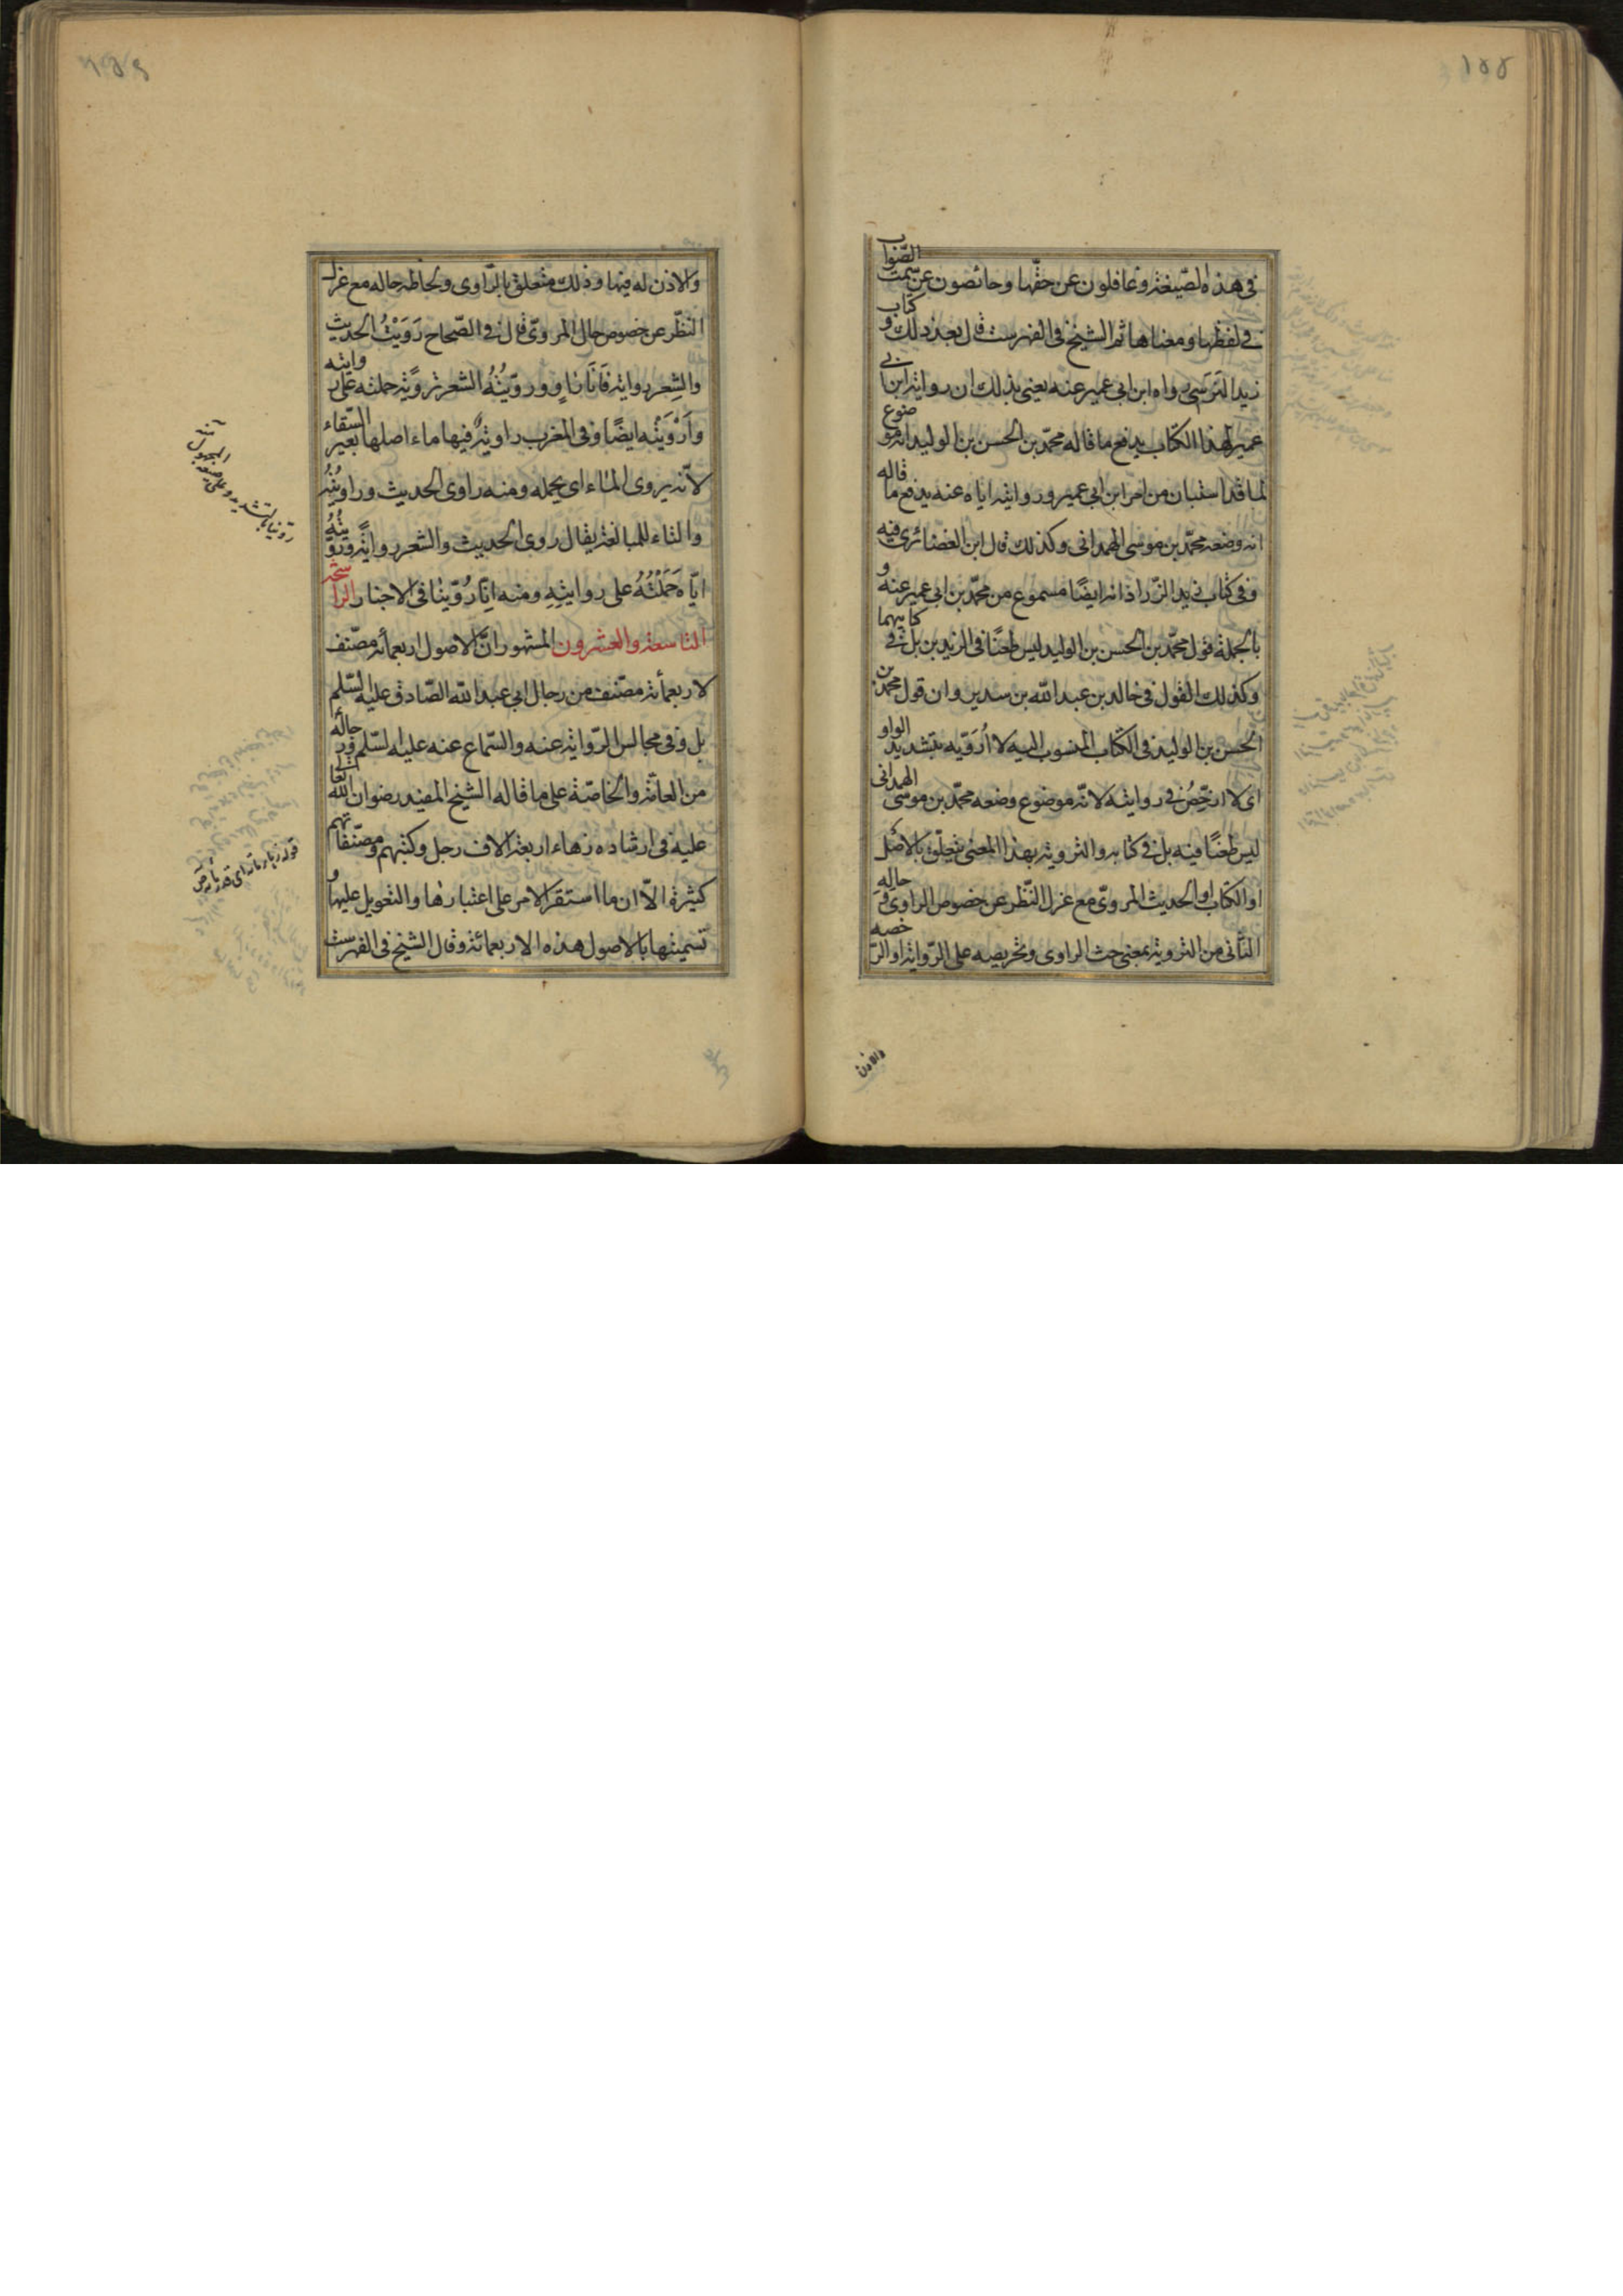 في هذه الصّيغة وغافلون عن حقّها وحائصون عن سمت الصّواب
في لفظها ومعناها ثم الشيخ في الفهرست قال بعد ذلك وكتاب
زيد النرسى رواه ابن ابي عمير عنه يعنى بذلك ان رواية ابن ابي
عمير لهذا الكتاب يدفع ما قاله محمّد بن الحسن بن الوليد انه موضوع
لما قد استبان من امر ابن ابي عمير وروايته اياه عنه يدفع ما قاله
انه وضعه محمّد بن موسى الهمدانى وكذلك قال ابن الغضائرى فيه
وفى كتاب زيد الزّراد انه ايضًا مسموع من محمّد بن ابي عمير عنه و
بالجملة قول محمّد بن الحسن بن الوليد ليس طعنًا فى الزيدين بل فى كتابيهما
وكذلك القول فى خالد بن عبد الله بن سدير وان قول محمد بن
الحسن بن الوليد فى الكتاب المنسوب اليه لا اُرَوّيه بتشديد الواو
اى لا ارخّصُ فى روايته لانّه موضوع وضعه محمّد بن موسى الهمدانى
ليس طعنًا فيه بل فى كتابه والتروية بهذا المعنى يتعلّق بالاصل
او الكتاب او الحديث المروىّ مع عزل النّظر عن خصوص الراوى وحاله
الثّانى من التروية بمعنى حث الراوى وتحريصه على الرّواية او الرّخصه
والاذن
والاذن له فيها وذلك متعلق بالرّاوى ولحاظه حاله مع عزل
النظّر عن خصوص حال المروىّ قال فى الصّحاح رَوَيْتُ الحديث
والشِعر رواية فَاَنَا رَاوٍ ورَوّيْتُهُ الشعر ترويًة حملته على روايته
وَاَرْوَيْتُه ايضًا وفى المغرب راويةٌ فيها ماء اصلها بعير السّقاء
لانّه يروى الماء اى يحمله ومنه راوى الحديث وراويتُهُ
والتاء للمبالغة يقال روى الحديث والشعر روايًة وَرَوّيْتُهُ
ايّاه حَمَلْتُهُ على روايتِهِ ومنه اِنّا رُوّينا فى الاخبار الراشحة
التاسعة والعشرون المشهور انّ الاصول اربعمأة مصنّف
لاربعمأة مصنّف من رجال ابي عبد الله الصّادق عليه السّلم
بل وفى مجالس الرّواية عنه والسّماع عنه عليه السّلم ورجاله
من العامّة والخاصّة على ما قاله الشيخ المفيد رضوان الله تعالى
عليه فى ارشاده زهاء اربعة الاف رجل وكتبهم ومصنّفاتهم
كثيرة الاّ ان ما استقر الامر على اعتبارها والتعويل عليها و
تسميتها بالاصول هذه الاربعمائة وقال الشيخ فى الفهرست